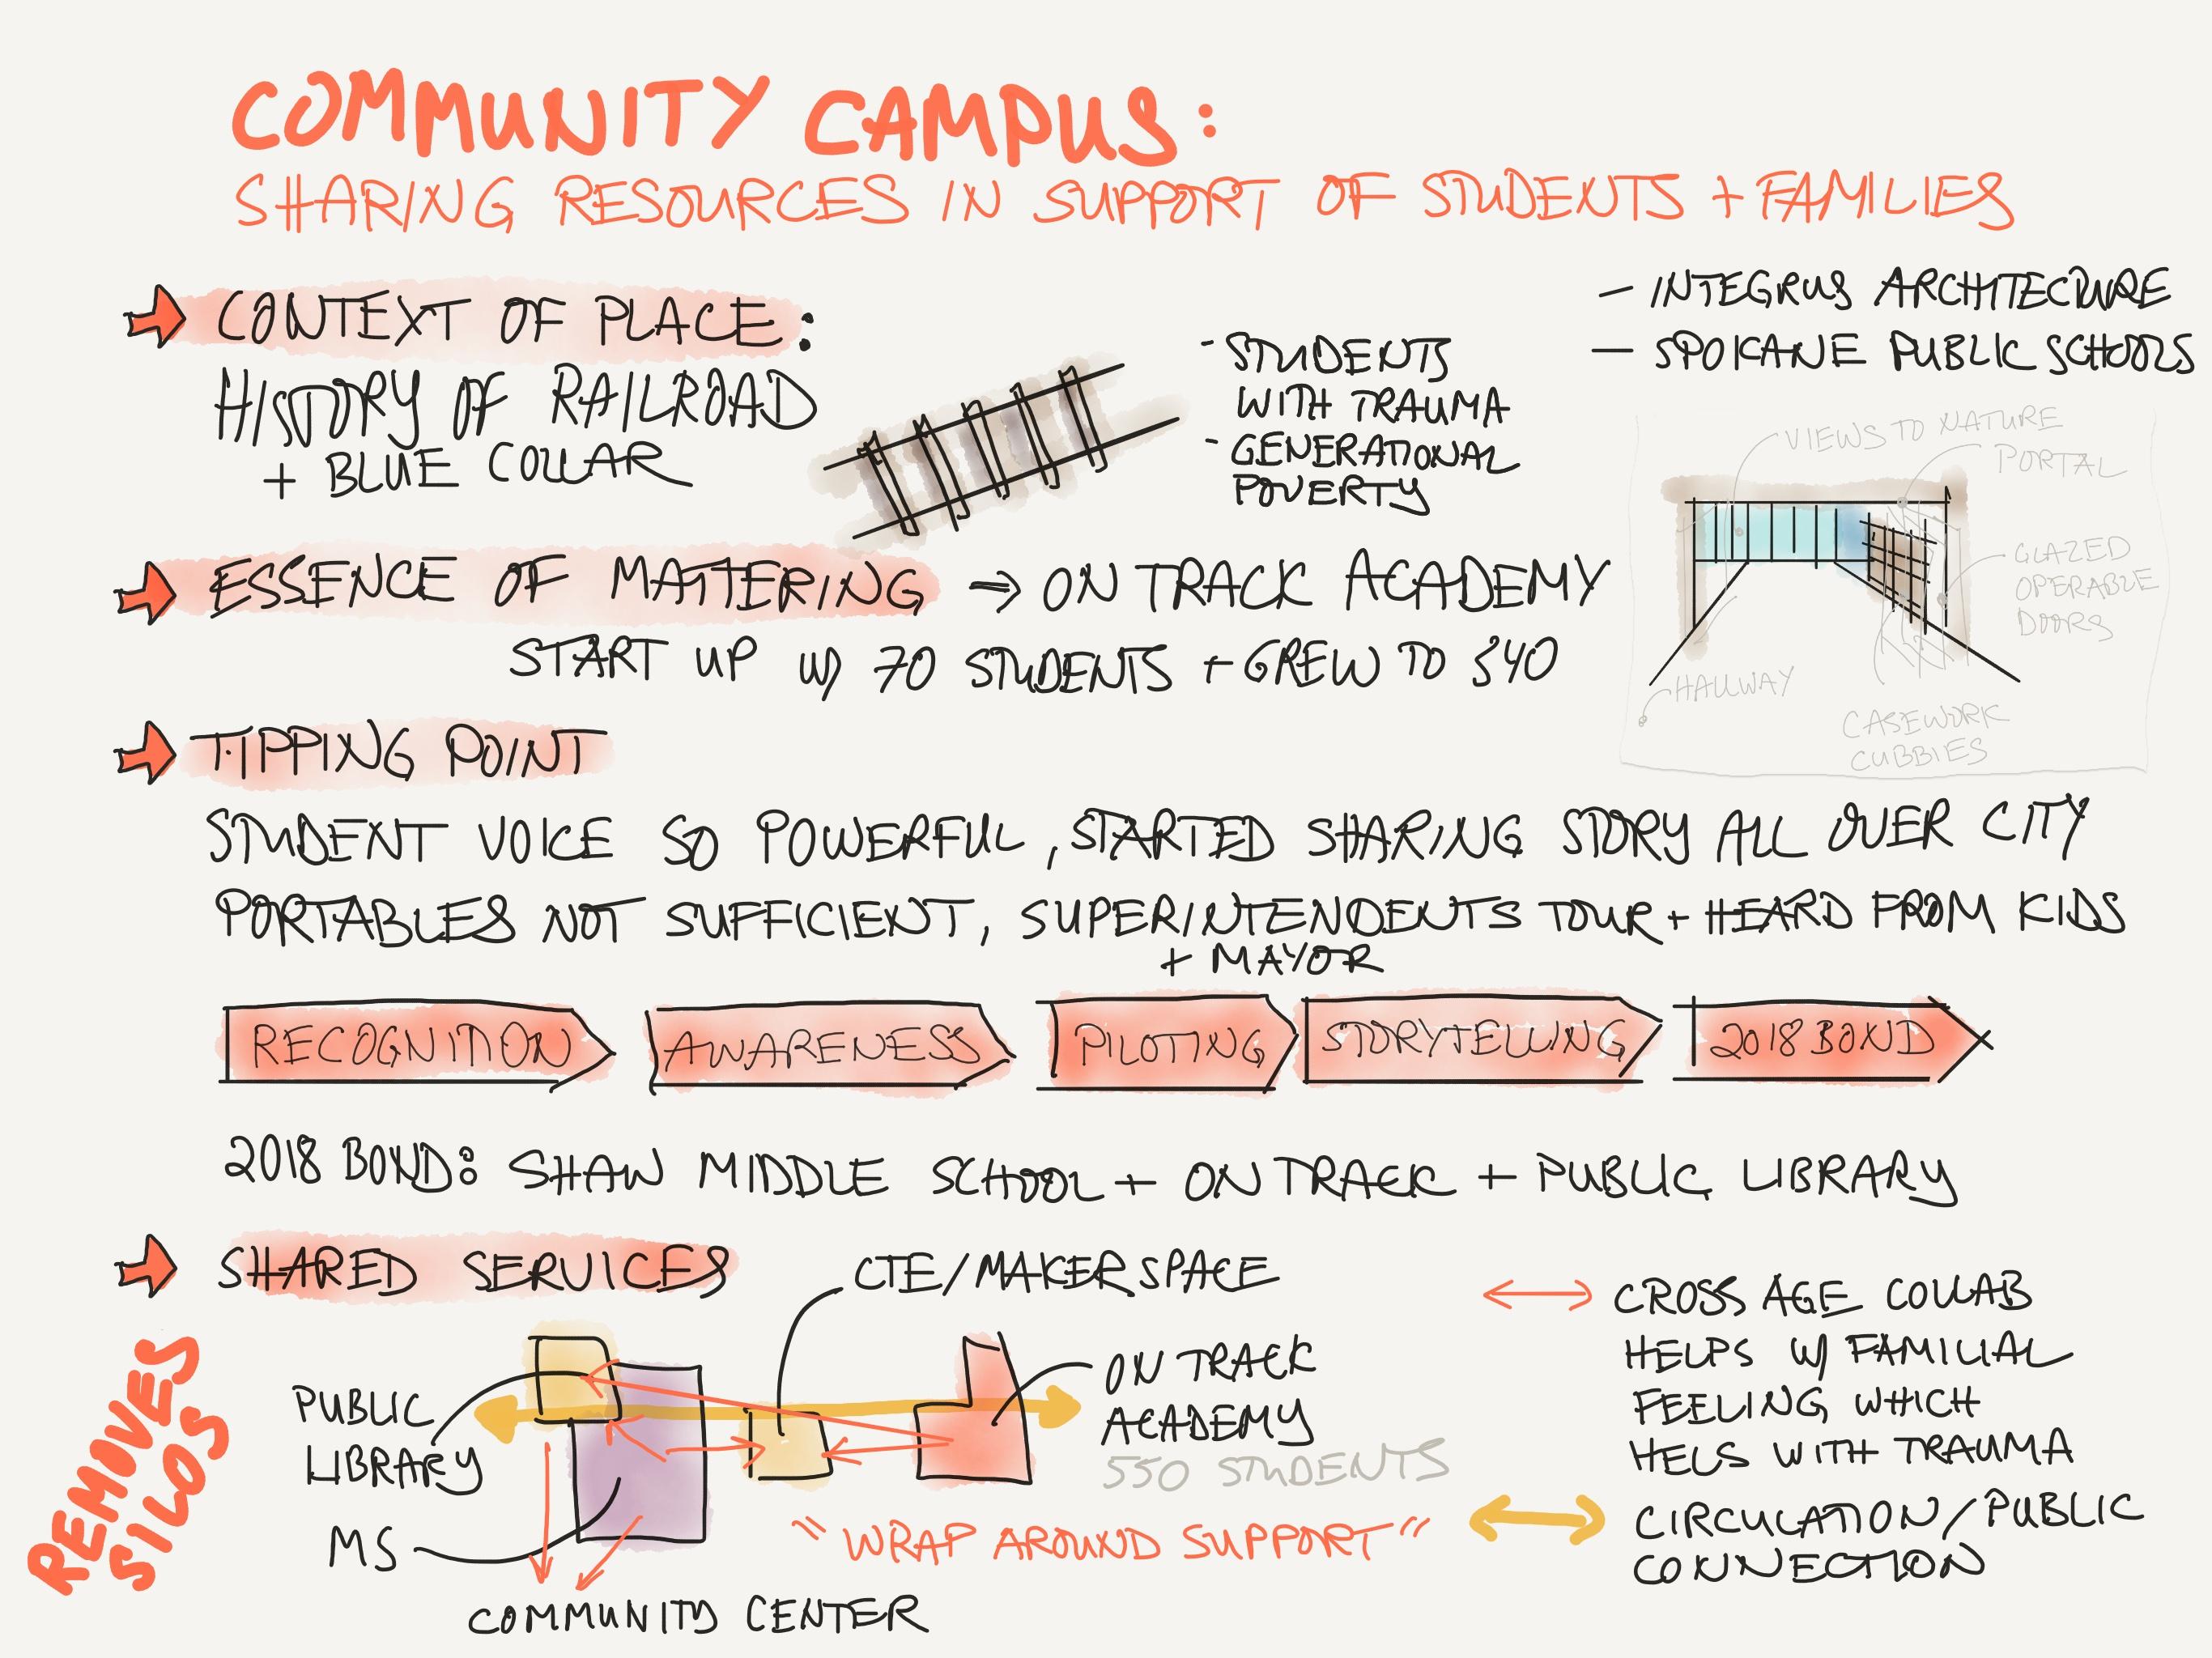 COMMUNITY CAMPUS:
SHARING RESOURCES IN SUPPORT OF STUDENTS + FAMILIES
- INTEGRUS ARCHITECTURE
- SPOKANE PUBLIC SCHOOLS
CONTEXT OF PLACE:
HISTORY OF RAILROAD
+ BLUE COLLAR
- STUDENTS
WITH TRAUMA
- GENERATIONAL
POVERTY
VIEWS TO NATURE
PORTAL
GLAZED
OPERABLE
DOORS
HALLWAY
CASEWORK
CUBBIES
ESSENCE OF MATTERING ⇒ ON TRACK ACADEMY
START UP W/ 70 STUDENTS + GREW TO 340
TIPPING POINT
STUDENT VOICE SO POWERFUL, STARTED SHARING STORY ALL OVER CITY
PORTABLES NOT SUFFICIENT, SUPERINTENDENTS TOUR + HEARD FROM KIDS
+ MAYOR
RECOGNITION
AWARENESS
PILOTING
STORYTELLING
2018 BOND
2018 BOND: SHAW MIDDLE SCHOOL + ON TRACK + PUBLIC LIBRARY
SHARED SERVICES
CTE/MAKERSPACE
ON TRACK
ACADEMY
550 STUDENTS
PUBLIC
LIBRARY
MS
COMMUNITY CENTER
"WRAP AROUND SUPPORT"
REMOVES
SILOS
CROSS AGE COLLAB
HELPS W/ FAMILIAL
FEELING WHICH
HELS WITH TRAUMA
CIRCULATION/PUBLIC
CONNECTION